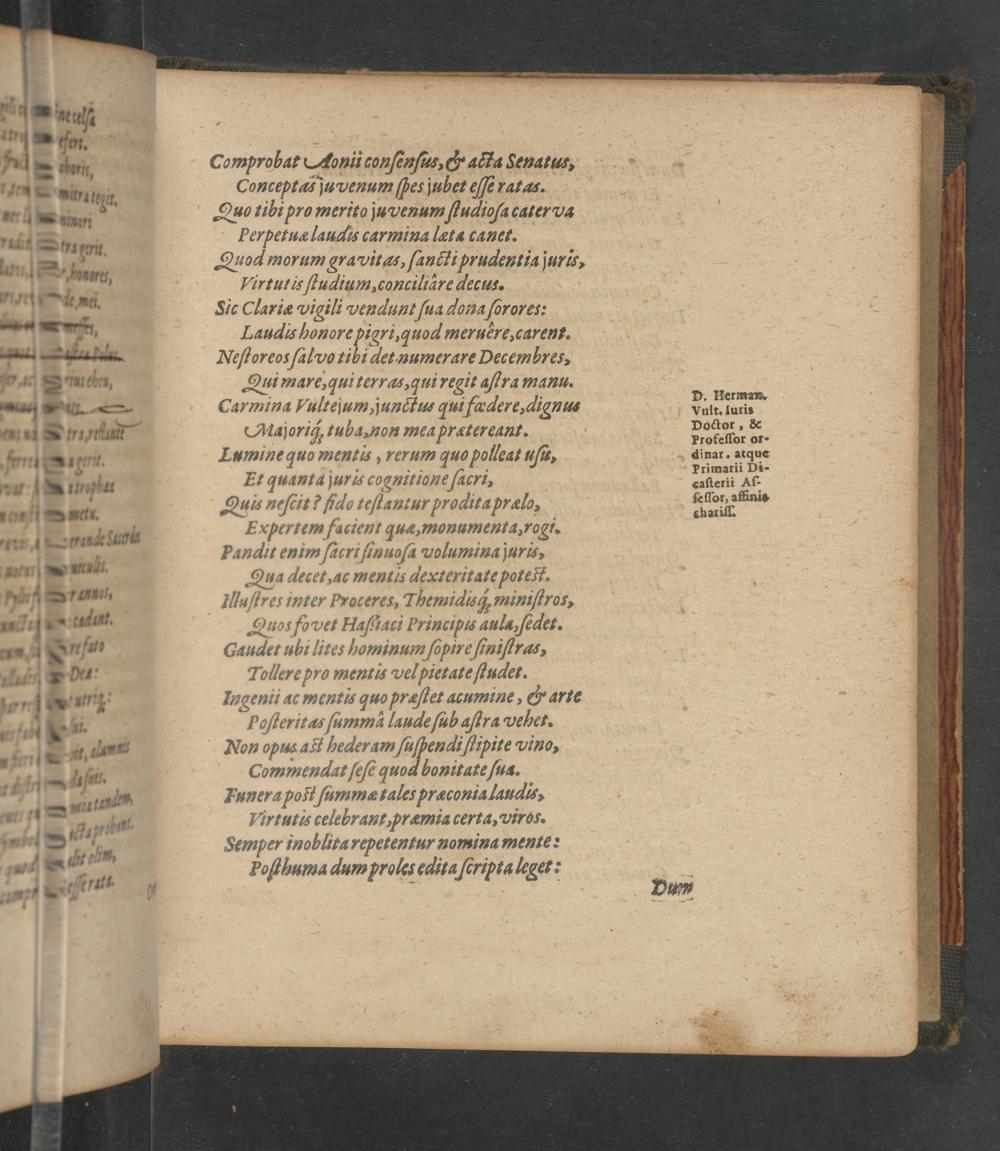 Comprobat Aonii consensus, & acta Senatus,
Conceptas juvenum spes jubet esse ratas.
Quo tibi pro merito juvenum studiosa caterva
Perpetuæ laudis carmina læta canet.
Quod morum gravitas, sancti prudentia juris,
Virtutis studium, conciliâre decus.
Sic Clariæ vigili vendunt sua dona sorores:
Laudis honore pigri, quod meruêre, carent.
Nestoreos salvo tibi det numerare Decembres,
Qui mare, qui terras, qui regit astra manu.
Carmina Vultejum, junctus qui fœdere, dignus
Majoriq́; tuba, non mea prætereant.
Lumine quo mentis, rerum quo polleat usu,
Et quantâ juris cognitione sacri,
Quis nescit? fido testantur prodita prælo,
Expertem facient quæ, monumenta, rogi.
Pandit enim sacri sinuosa volumina juris,
Qua decet, ac mentis dexteritate potest.
Illustres inter Proceres, Themidisq́; ministros,
Quos fovet Haßiaci Principis aula, sedet.
Gaudet ubi lites hominum sopire sinistras,
Tollere pro mentis vel pietate studet.
Ingenii ac mentis quo præstet acumine, & arte
Posteritas summâ laude sub astra vehet.
Non opus ast hederam suspendi stipite vino,
Commendat sese quod bonitate sua.
Funera post summæ tales præconia laudis,
Virtutis celebrant, præmia certa, viros.
Semper inoblita repetentur nomina mente:
Posthuma dum proles edita scripta leget:
Dum
D. Herman.
Vult. Iuris
Doctor, &
Professor or-
dinar. atque
Primarii Di-
casterii As-
sessor, affinis
chariss.